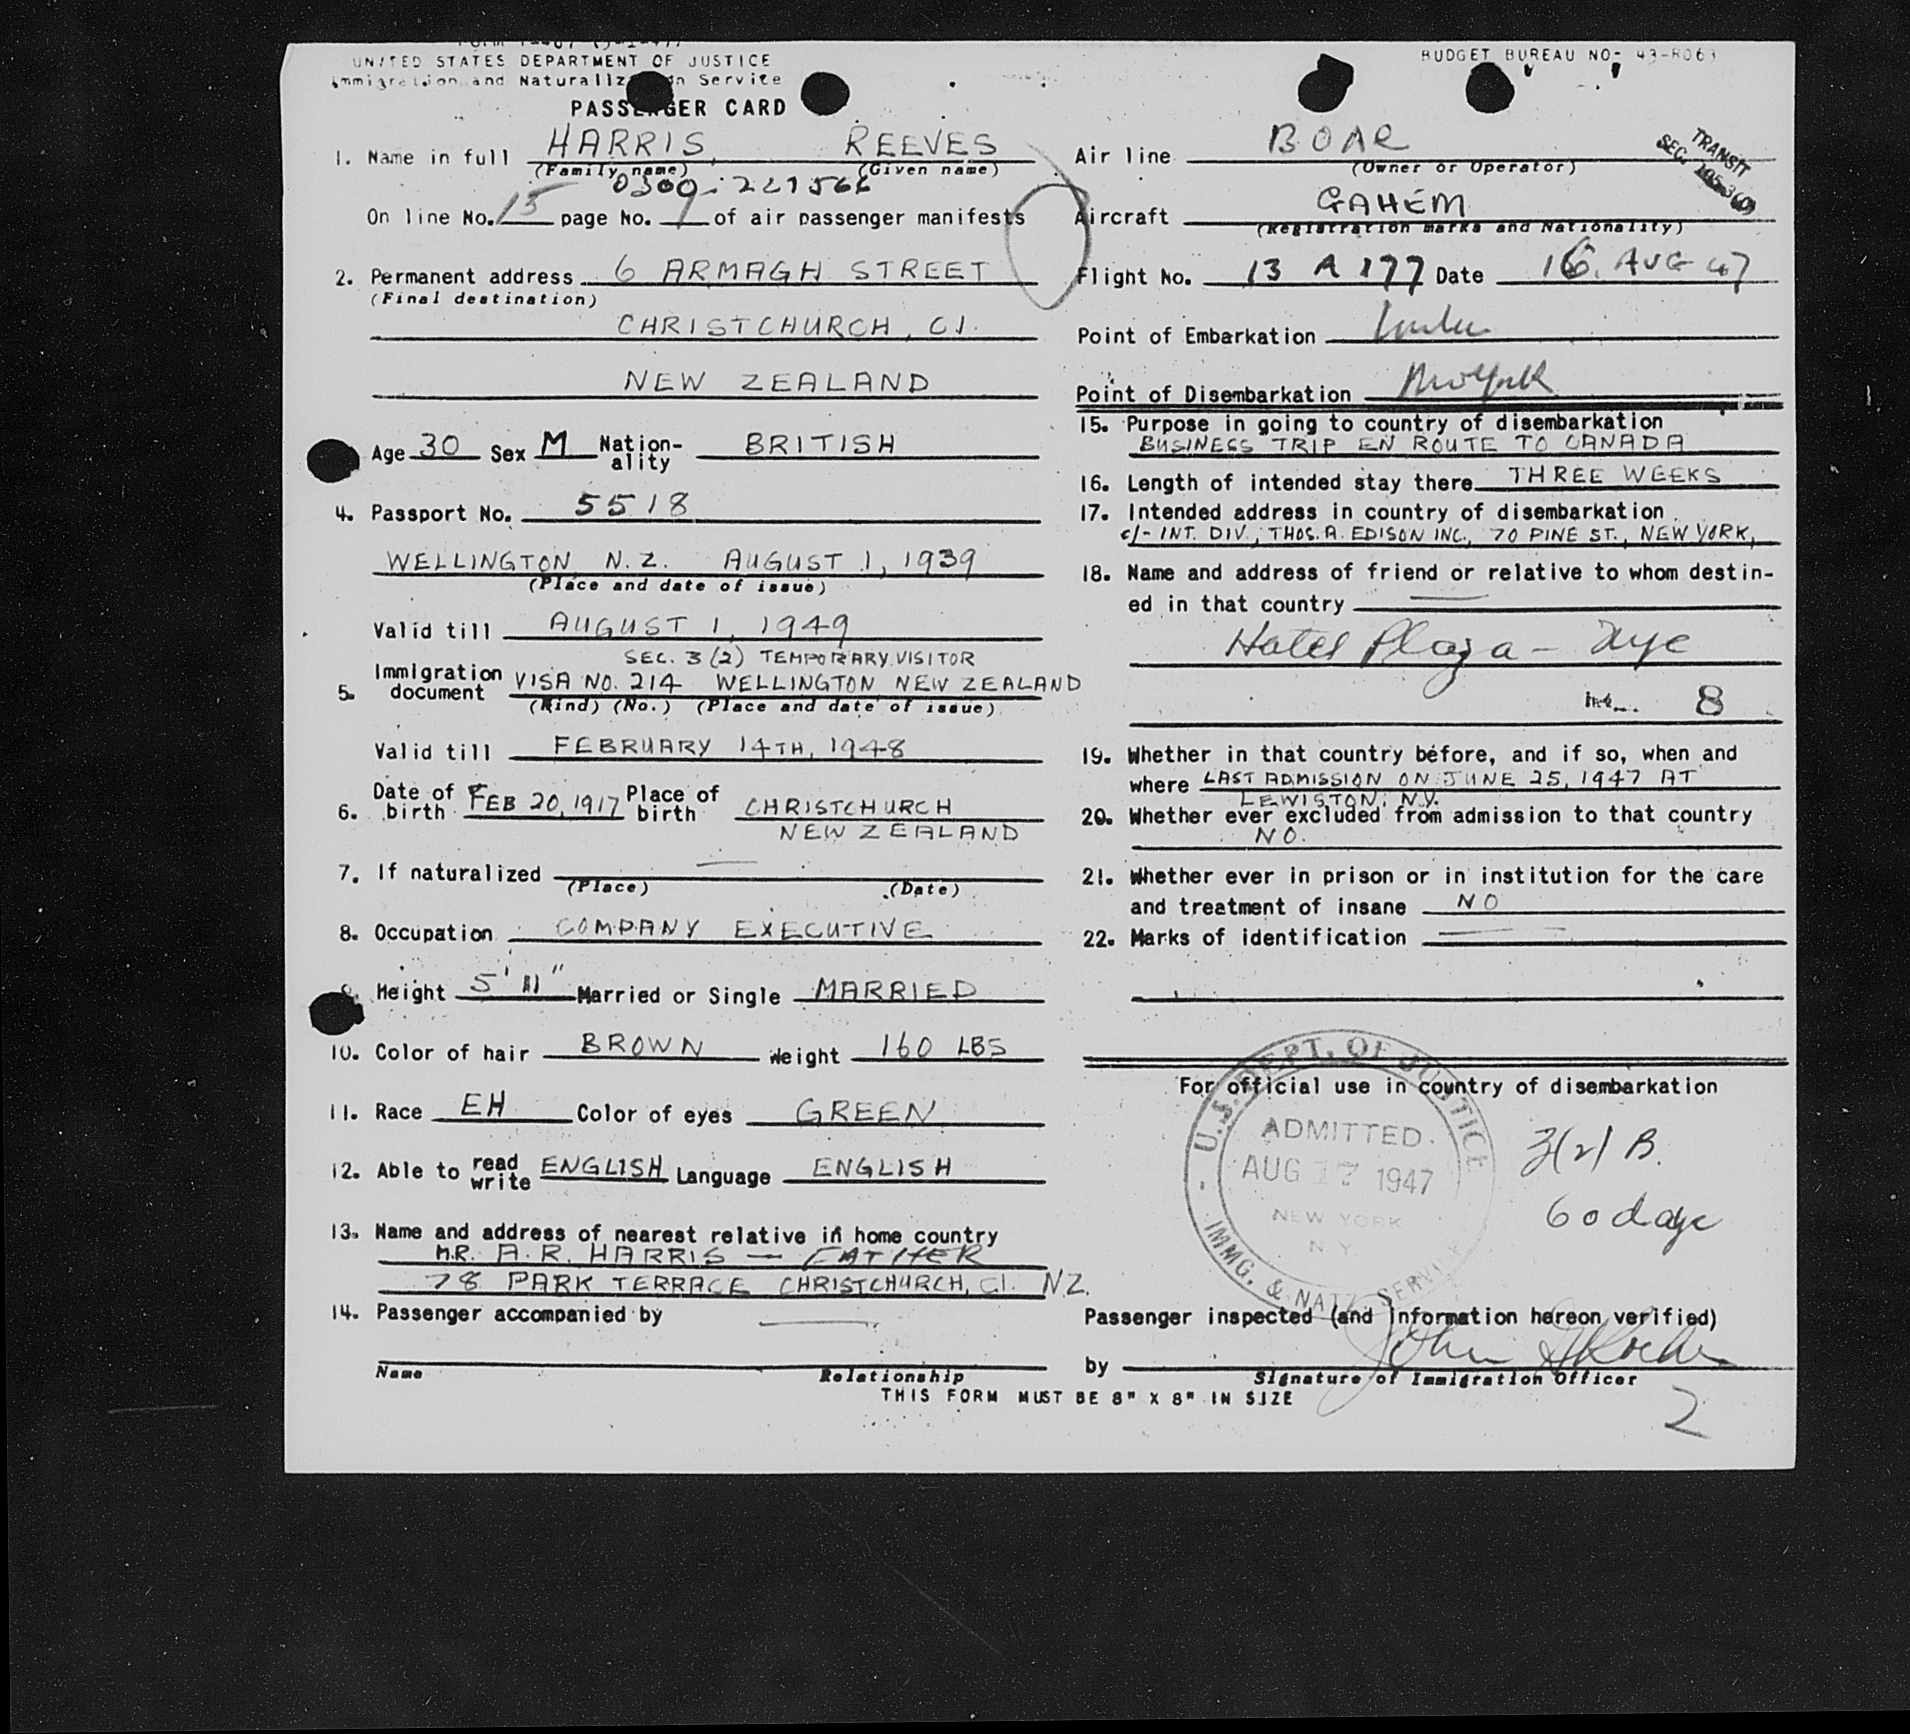 UNITED STATES DEPARTMENT OF JUSTICE
Immigration and Naturalization Service
BUDGET BUREAU NO- 43-R063
PASSENGER CARD
1. Name in full HARRIS, REEVES
(Family name) (Given name)
0300-221566
On line No. 15 page No. 1 of air passenger manifests
2. Permanent address 6 ARMAGH STREET
(Final destination)
CHRISTCHURCH, C1.
NEW ZEALAND
Age 30 Sex M Nationality BRITISH
4. Passport No. 5518
WELLINGTON N.Z. AUGUST 1, 1939
(Place and date of issue)
Valid till AUGUST 1, 1949
SEC. 3 (2) TEMPORARY VISITOR
5. Immigration document VISA NO. 214 WELLINGTON NEW ZEALAND
(Kind) (No.) (Place and date of issue)
Valid till FEBRUARY 14TH, 1948
6. Date of birth FEB 20, 1917 Place of birth CHRISTCHURCH
NEW ZEALAND
7. If naturalized —
(Place) (Date)
8. Occupation COMPANY EXECUTIVE
9. Height 5' 11" Married or Single MARRIED
10. Color of hair BROWN Weight 160 LBS
11. Race EH Color of eyes GREEN
12. Able to read write ENGLISH Language ENGLISH
13. Name and address of nearest relative in home country
MR. A. R. HARRIS — FATHER
78 PARK TERRACE CHRISTCHURCH, C1. N.Z.
14. Passenger accompanied by
Name Relationship
THIS FORM MUST BE 8" X 8" IN SIZE
Air line BOAC
(Owner or Operator)
TRANSIT
SEC.
Aircraft GAHEM
(Registration marks and Nationality)
Flight No. 13 A 177 Date 16 AUG 47
Point of Embarkation London
Point of Disembarkation New York
15. Purpose in going to country of disembarkation
BUSINESS TRIP EN ROUTE TO CANADA
16. Length of intended stay there THREE WEEKS
17. Intended address in country of disembarkation
c/- INT. DIV., THOS. A. EDISON INC., 70 PINE ST., NEW YORK,
18. Name and address of friend or relative to whom destin-
ed in that country —
Hotel Plaza - nyc
8
19. Whether in that country before, and if so, when and
where LAST ADMISSION ON JUNE 25, 1947 AT
LEWISTON, N.Y.
20. Whether ever excluded from admission to that country
NO.
21. Whether ever in prison or in institution for the care
and treatment of insane NO
22. Marks of identification —
For official use in country of disembarkation
U.S. DEPT. OF JUSTICE
ADMITTED
AUG 17 1947
NEW YORK
N.Y.
IMMG. & NATZ. SERVICE
3(2) B.
60 days
Passenger inspected (and information hereon verified)
by John
Signature of Immigration Officer
2